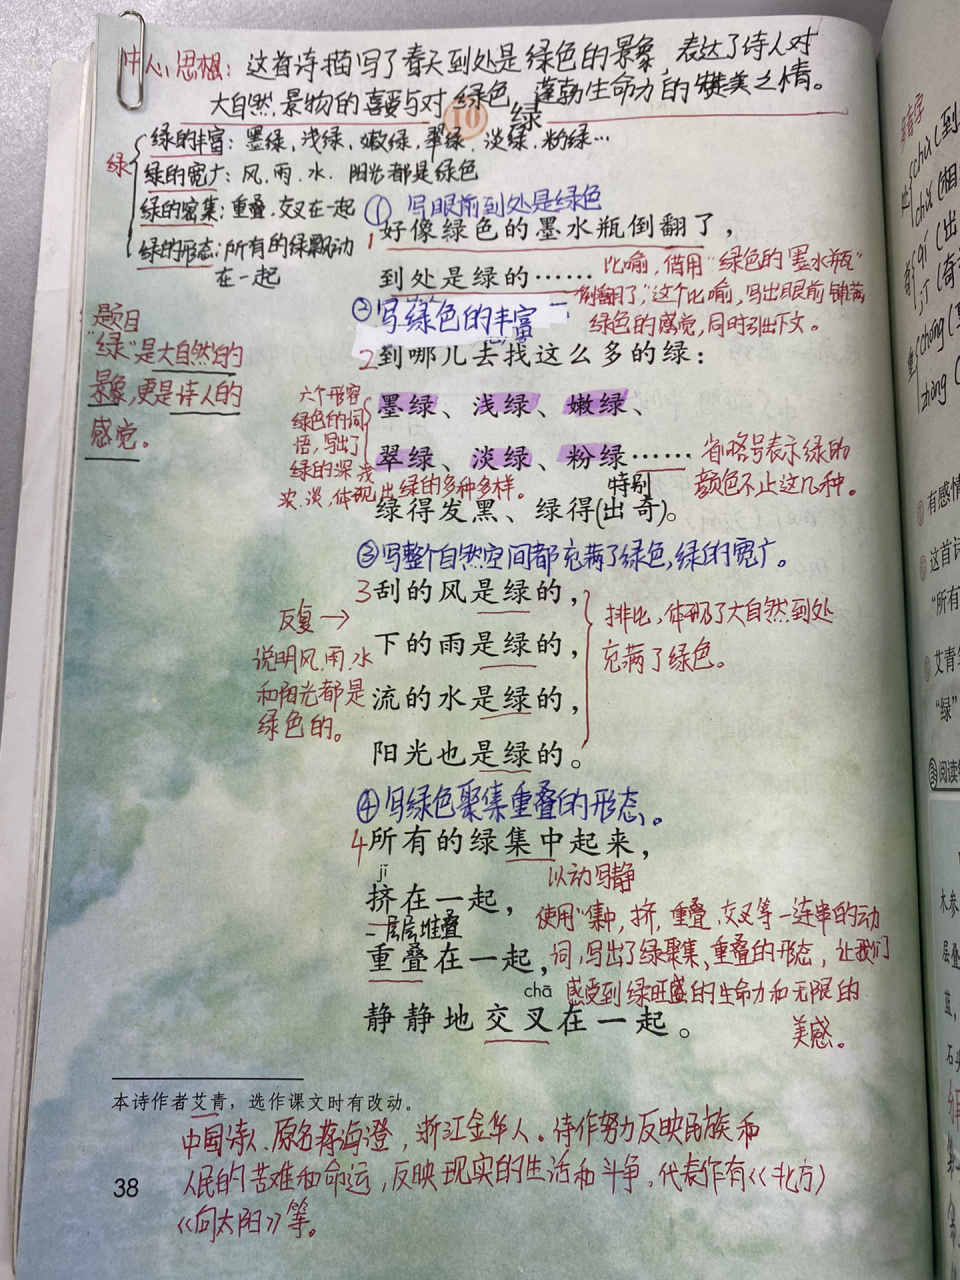 中心思想：这首诗描写了春天到处是绿色的景象，表达了诗人对
大自然景物的喜爱与对绿色，蓬勃生命力的赞美之情。
10 绿
绿
绿的丰富：墨绿，浅绿，嫩绿，翠绿，淡绿，粉绿…
绿的宽广：风、雨、水、阳光都是绿色
绿的密集：重叠、交叉在一起
绿的形态：所有的绿飘动
在一起
①写眼前到处是绿色
1好像绿色的墨水瓶倒翻了，
到处是绿的……
比喻，借用“绿色的墨水瓶
倒翻了”，这个比喻，写出眼前铺满
绿色的感觉，同时引出下文。
题目
“绿”是大自然的
景象，更是诗人的
感觉。
②写绿色的丰富
2到哪儿去找这么多的绿：
墨绿、浅绿、嫩绿、
翠绿、淡绿、粉绿……
六个形容
绿色的词
语，写出了
绿的深、浅
浓、淡，体现出绿的多种多样。
省略号表示绿的
颜色不止这几种。
特别
绿得发黑、绿得(出奇)。
③写整个自然空间都充满了绿色，绿的宽广。
3刮的风是绿的，
下的雨是绿的，
流的水是绿的，
阳光也是绿的。
反复→
说明风、雨、水
和阳光都是
绿色的。
排比，体现了大自然到处
充满了绿色。
④写绿色聚集重叠的形态。
4所有的绿集中起来，
以动写静
jǐ
挤在一起，
层层堆叠
重叠在一起，
chā
静静地交叉在一起。
使用“集中，挤，重叠、交叉等一连串的动
词，写出了绿聚集、重叠的形态，让我们
感受到绿旺盛的生命力和无限的
美感。
本诗作者艾青，选作课文时有改动。
中国诗人、原名蒋海澄，浙江金华人。诗作努力反映民族和
人民的苦难和命运，反映现实的生活和斗争。代表作有《北方》
《向太阳》等。
38
有感情
这首诗
“所有
艾青
“绿”
阅读
层叠
蓝，